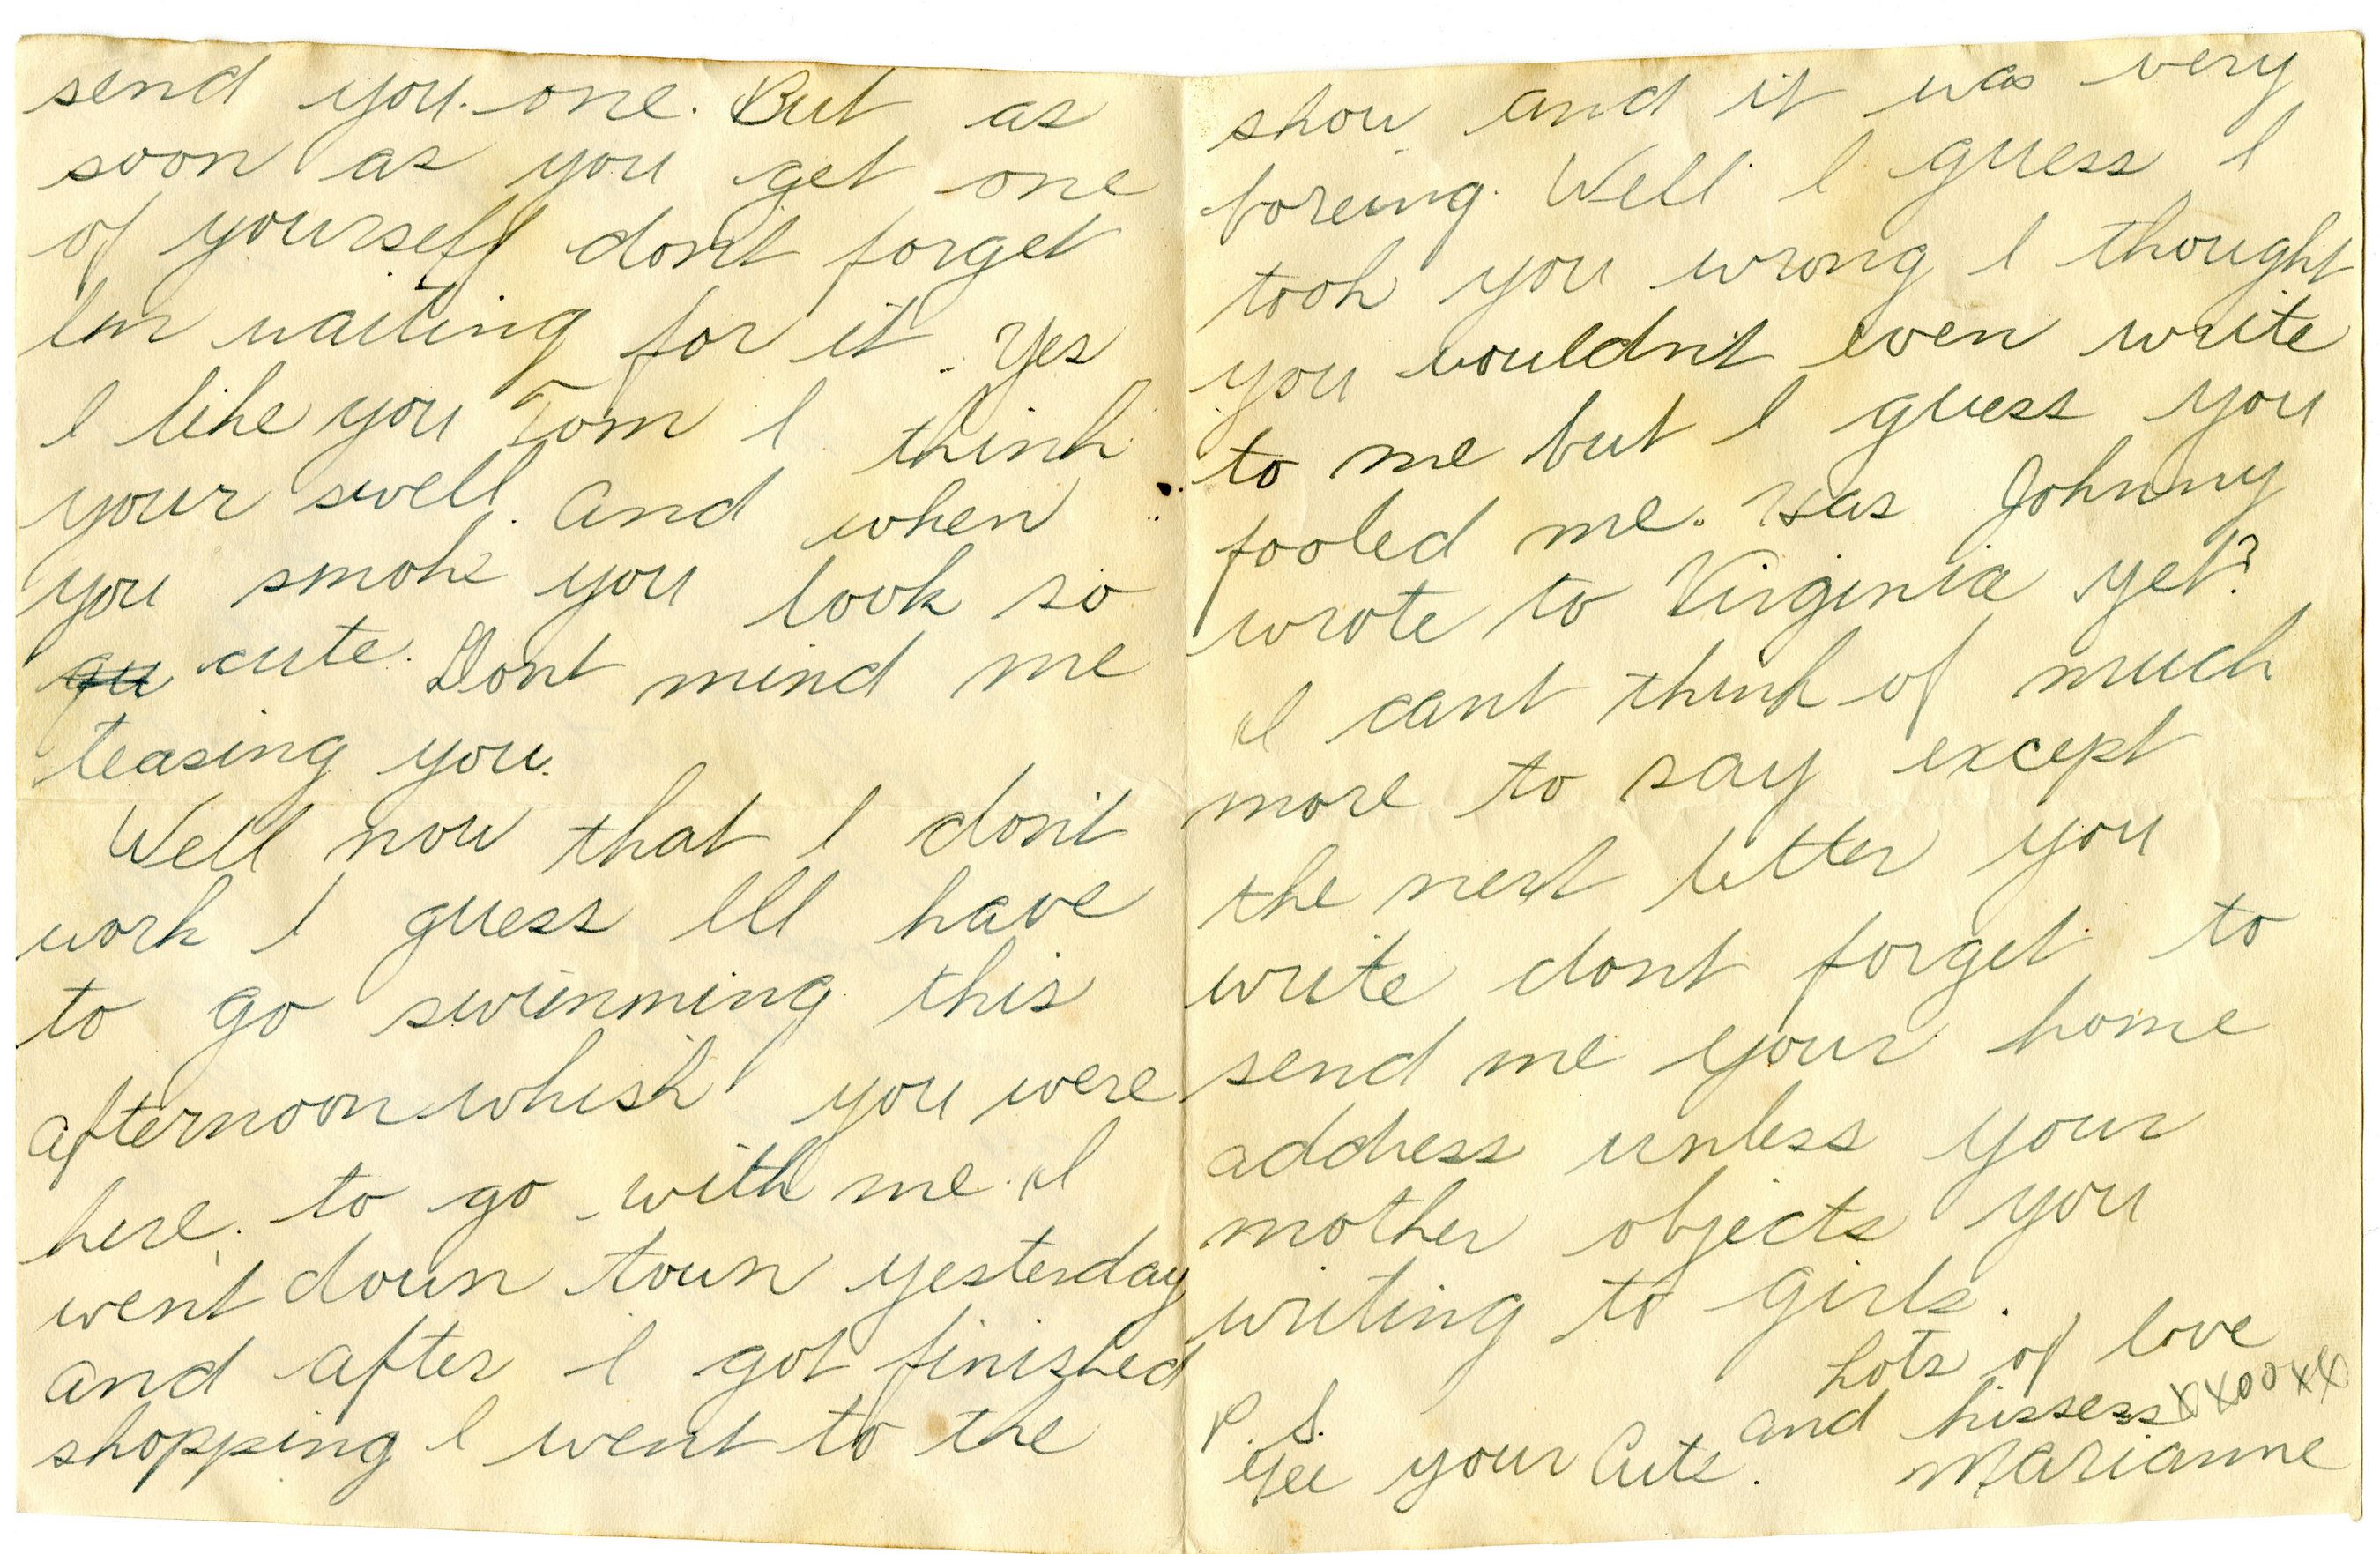 send you one. But as
soon as you get one
of yourself don't forget
Im waiting for it. Yes
I like you Tom I think
your swell. And when
you smoke you look so
cute. Dont mind me
teasing you.
Well now that I don't
work I guess Ill have
to go swimming this
afternoon whish you were
here. to go with me. I
went down town yesterday
and after I got finished
shopping I went to the
show and it was very
boreing. Well I guess I
took you wrong I thought
you wouldn't even write
to me but I guess you
fooled me. Has Johnny
wrote to Virginia yet?
I cant think of much
more to say except
the next letter you
write dont forget to
send me your home
address unless your
mother objects you
writing to girls.
Lots of love
and kissess XXOOXX
Marianne
P.S.
Gee your Cute.